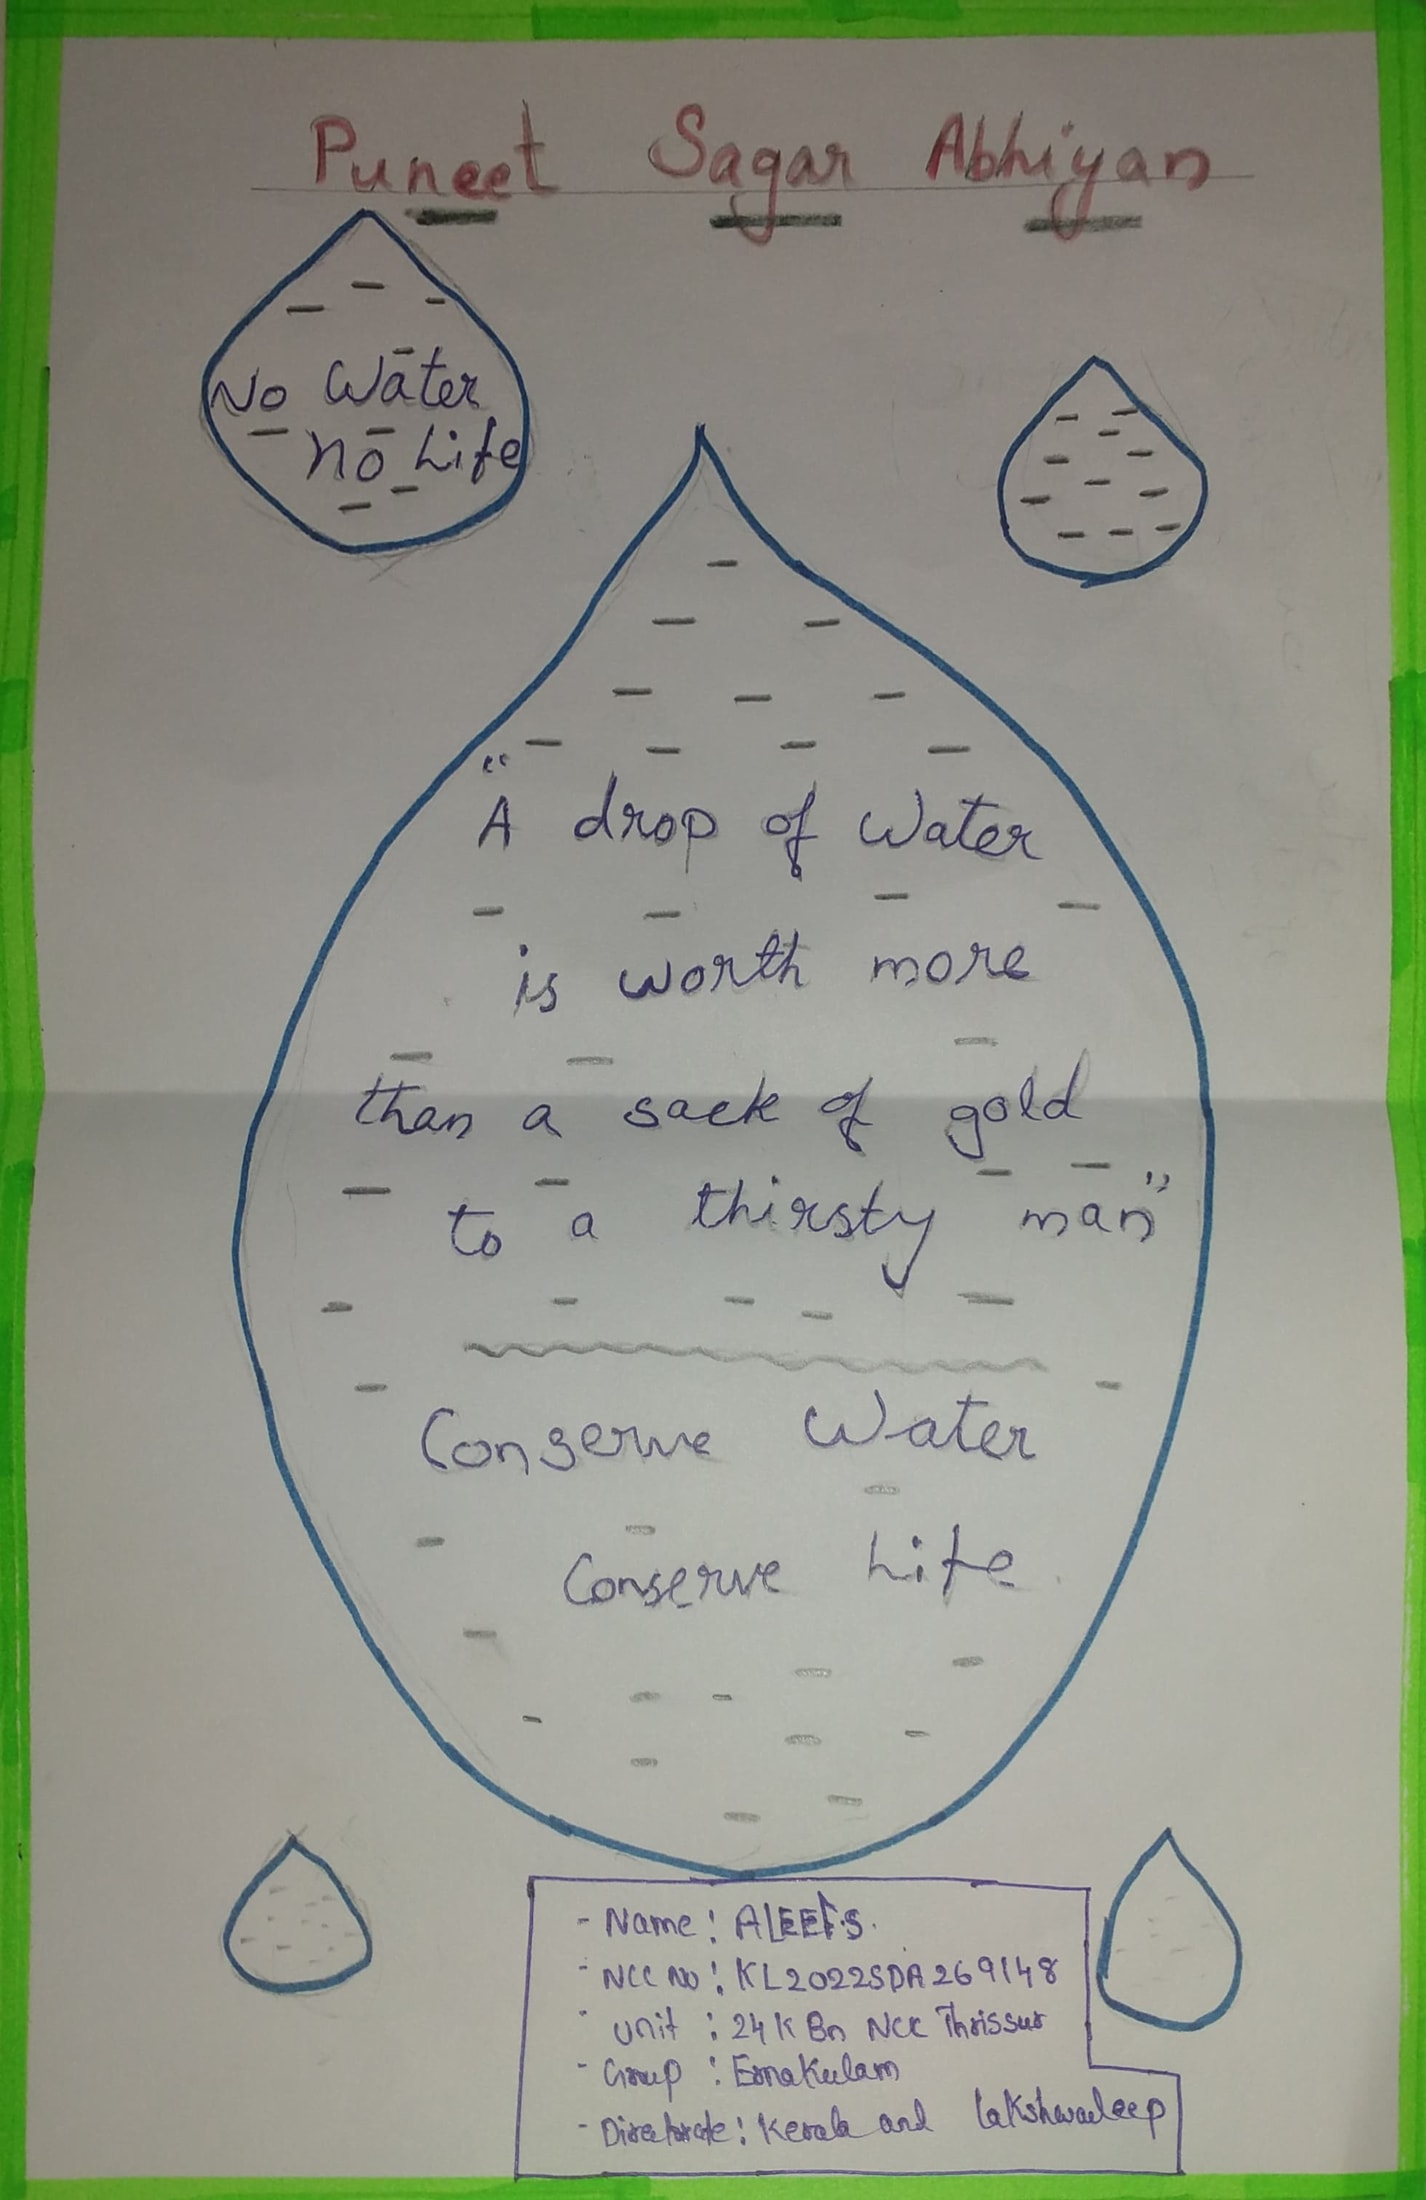 Puneet Sagar Abhiyan
No Water
no Life
"A drop of Water
is worth more
than a sack of gold
to a thirsty man"
Conserve Water
Conserve Life
- Name : ALEEF.S.
- NCC No : KL2022SDA269148
- Unit : 24 K Bn NCC Thrissur
- Group : Ernakulam
- Directorate : Kerala and Lakshwadeep